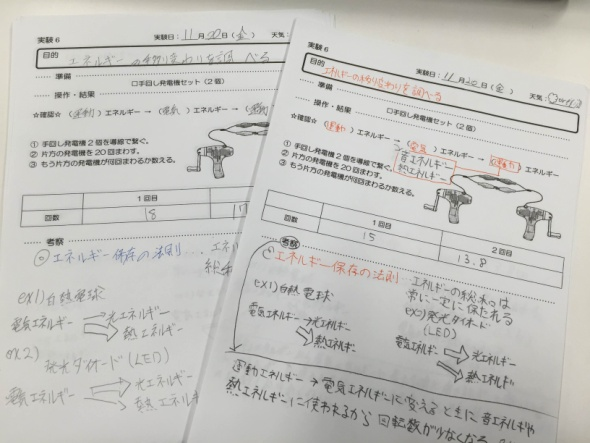 実験6
実験日：11月20日（金）
天気：
目的
エネルギーの移り変わりを調べる
準備
□手回し発電機セット（2個）
操作・結果
☆確認☆（運動）エネルギー→（電気）エネルギー→（運動）
① 手回し発電機2個を導線で繋ぐ。
② 片方の発電機を20回まわす。
③ もう片方の発電機が何回まわるか数える。
1回目
回数
18
考察
◎エネルギー保存の法則...
ex1)白熱電球
電気エネルギー→光エネルギー
熱エネルギー
ex2)
発光ダイオード(LED)
電気エネルギー→光エネルギー
熱エネルギー
実験6
実験日：11月20日（金）
天気：
目的
エネルギーの移り変わりを調べる
準備
□手回し発電機セット（2個）
操作・結果
☆確認☆（運動）エネルギー→（電気）エネルギー→（運動）エネルギー
音エネルギー
熱エネルギー
① 手回し発電機2個を導線で繋ぐ。
② 片方の発電機を20回まわす。
③ もう片方の発電機が何回まわるか数える。
1回目
2回目
回数
15
13.8
考察
エネルギー保存の法則...エネルギーの総和は
常に一定に保たれる
ex1)白熱電球
電気エネルギー→光エネルギー
熱エネルギー
ex2)発光ダイオード
(LED)
電気エネルギー
光エネルギー
熱エネルギー
運動エネルギー→電気エネルギーに変えるときに音エネルギーや
熱エネルギーに使われるから回転数が少なくなる